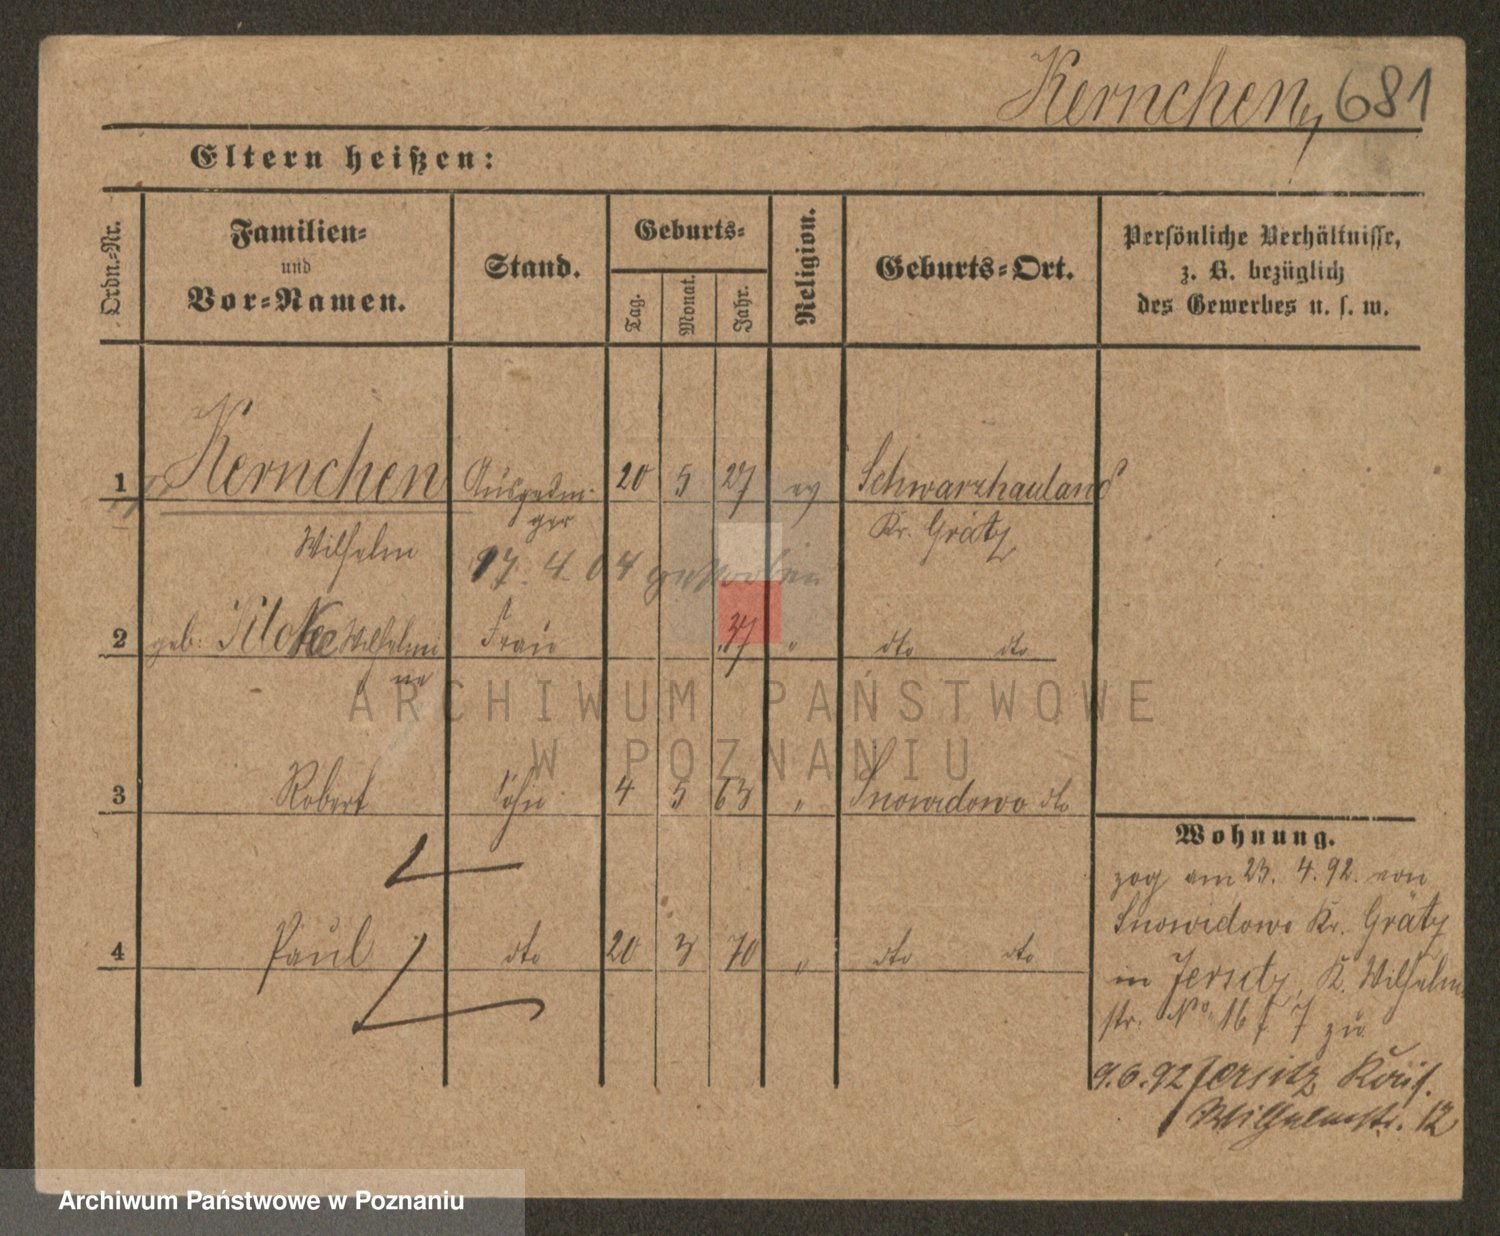 Kernchen, 681
Eltern heißen:
Ordn.-Nr.
Familien-
und
Vor-Namen.
Stand.
Geburts-
Tag.
Monat.
Jahr.
Religion.
Geburts-Ort.
Persönliche Verhältnisse,
z. B. bezüglich
des Gewerbes u. s. w.
1 Kernchen Ausgedin- 20 5 27 ev Schwarzhauland
Wilhelm ger Kr. Grätz
17. 4. 04 gestorben
2 geb: Wilhelmi Frau 37 " dto dto
ne
3 Robert Sohn 4 5 63 " Snowidowo dto
4 Paul dto 20 3 70 " dto dto
Wohnung.
zog am 23. 4. 92. von
Snowidowo Kr. Grätz
in Jersitz, K. Wilhelm
str. No. 16 7 zu
9.6.92 Jersitz
Wilhelmstr. 12
ARCHIWUM PAŃSTWOWE
W POZNANIU
Archiwum Państwowe w Poznaniu